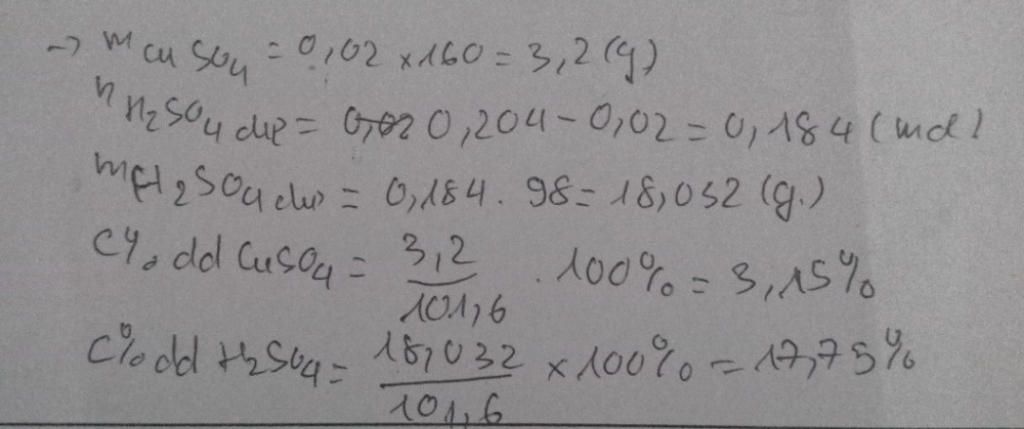 → mCuSO4 = 0,02 x 160 = 3,2 (g)
nH2SO4 dư = 0,204 - 0,02 = 0,184 (mol)
mH2SO4 dư = 0,184 . 98 = 18,032 (g.)
C% dd CuSO4 = 3,2 / 101,6 . 100% = 3,15%
C% dd H2SO4 = 18,032 / 101,6 x 100% = 17,75%